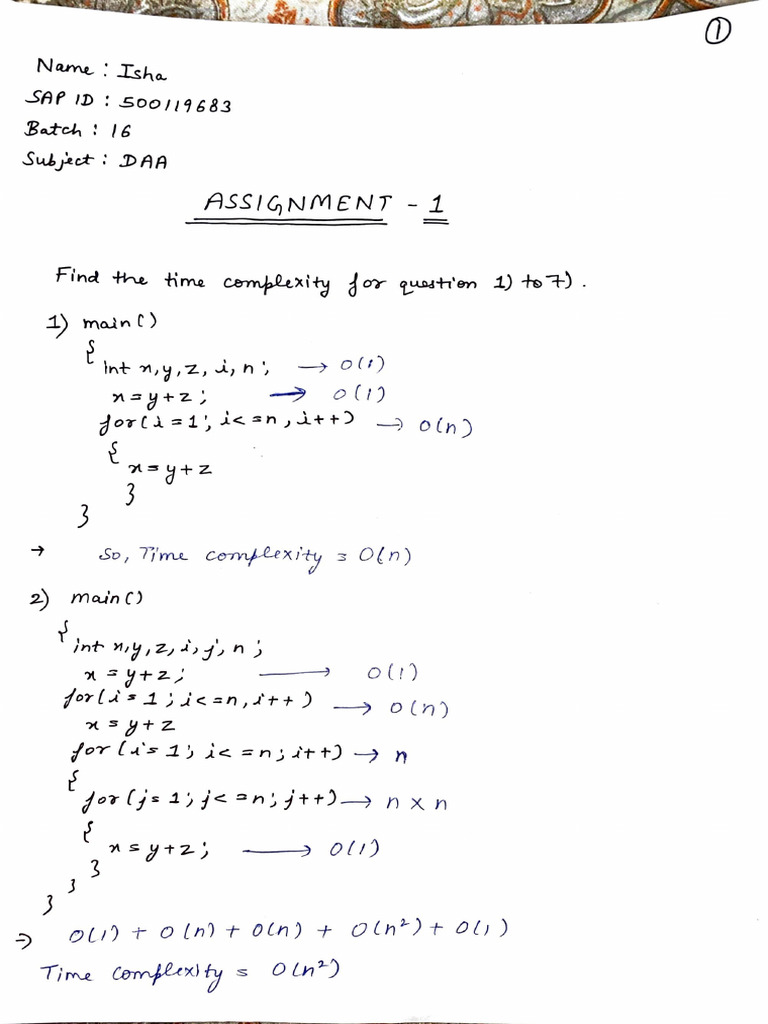 ①
Name : Isha
SAP ID : 500119683
Batch : 16
Subject : DAA
ASSIGNMENT - 1
Find the time complexity for question 1) to 7).
1) main()
{
int x,y,z,i,n; → O(1)
x=y+z; → O(1)
for(i=1; i<=n, i++) → O(n)
{
x=y+z
}
}
→ So, Time complexity = O(n)
2) main()
{
int x,y,z,i,j,n;
x=y+z; → O(1)
for(i=1; i<=n, i++) → O(n)
x=y+z
for(i=1; i<=n; i++) → n
{
for(j=1; j<=n; j++) → n x n
{
x=y+z; → O(1)
}
}
}
⇒ O(1) + O(n) + O(n) + O(n²) + O(1)
Time complexity = O(n²)